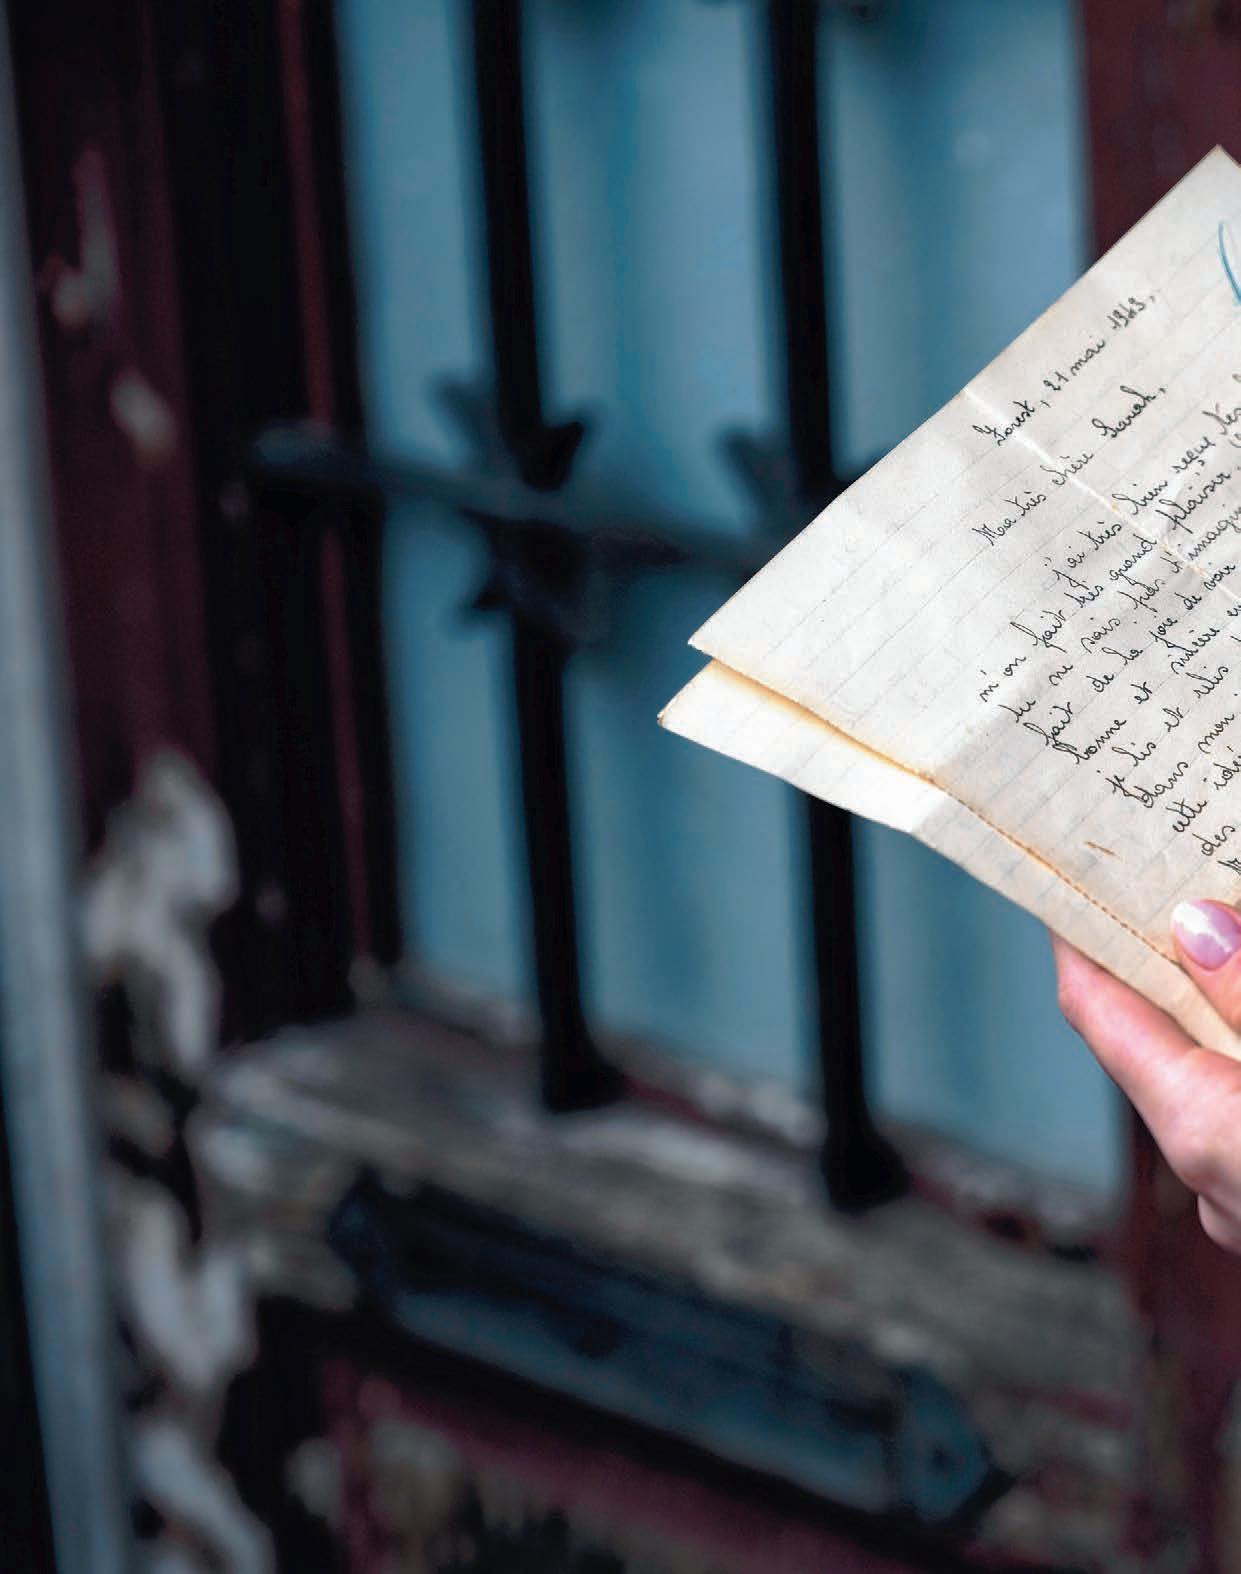 Forest, 21 mai 1943,
Ma très chère Sarah,
J'ai très bien reçu tes
m'on fait très grand plaisir.
tu ne sais pas t'imagin
fait de la joie de voir
bonne et sincère
je lis et relis
dans mon
cette idé
des